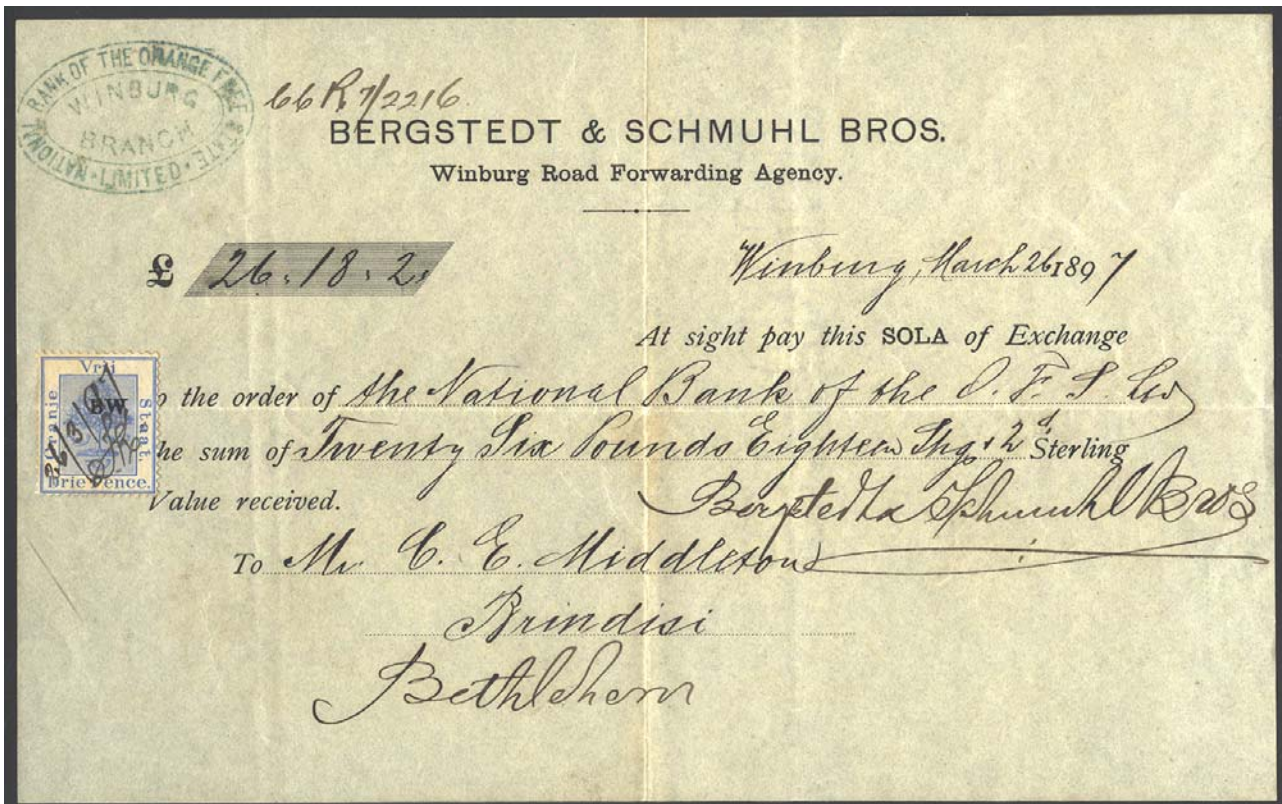 NATIONAL BANK OF THE ORANGE FREE STATE LIMITED
WINBURG
BRANCH
66 R 7/2216
BERGSTEDT & SCHMUHL BROS.
Winburg Road Forwarding Agency.
£ 26.18.2.
Winburg, March 26 1897
At sight pay this SOLA of Exchange
o the order of the National Bank of the O. F. S. Ltd
the sum of Twenty Six Pounds Eighteen Shgs & 2d Sterling
Value received.
Bergstedt & Schmuhl Bros
To Mr C. E. Middleton
Brindisi
Bethlehem
Vrij
Staat
BW
Drie Pence.
26/3/97